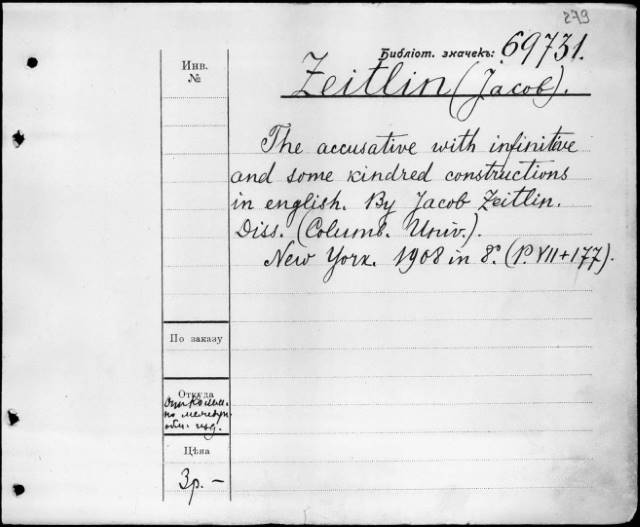 279
Библіот. значекъ: 69731.
Инв.
№
Zeitlin (Jacob).
The accusative with infinitive
and some kindred constructions
in english. By Jacob Zeitlin.
Diss. (Columb. Univ.).
New York. 1908 in 8º. (P. VII+177).
По заказу
Откуда
по
Цѣна
3 р. –